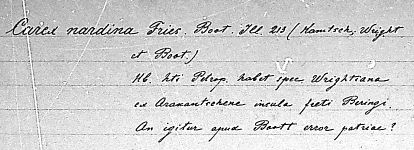 Carex nardina Fries. Boot. Ill. 213 (Kamtsch, Wright
et Boot.)
Hb. hti Petrop. habet spec Wrightiana
ex Arakamtschene insula freti Beringi
An igitur apud Boott error patriae?